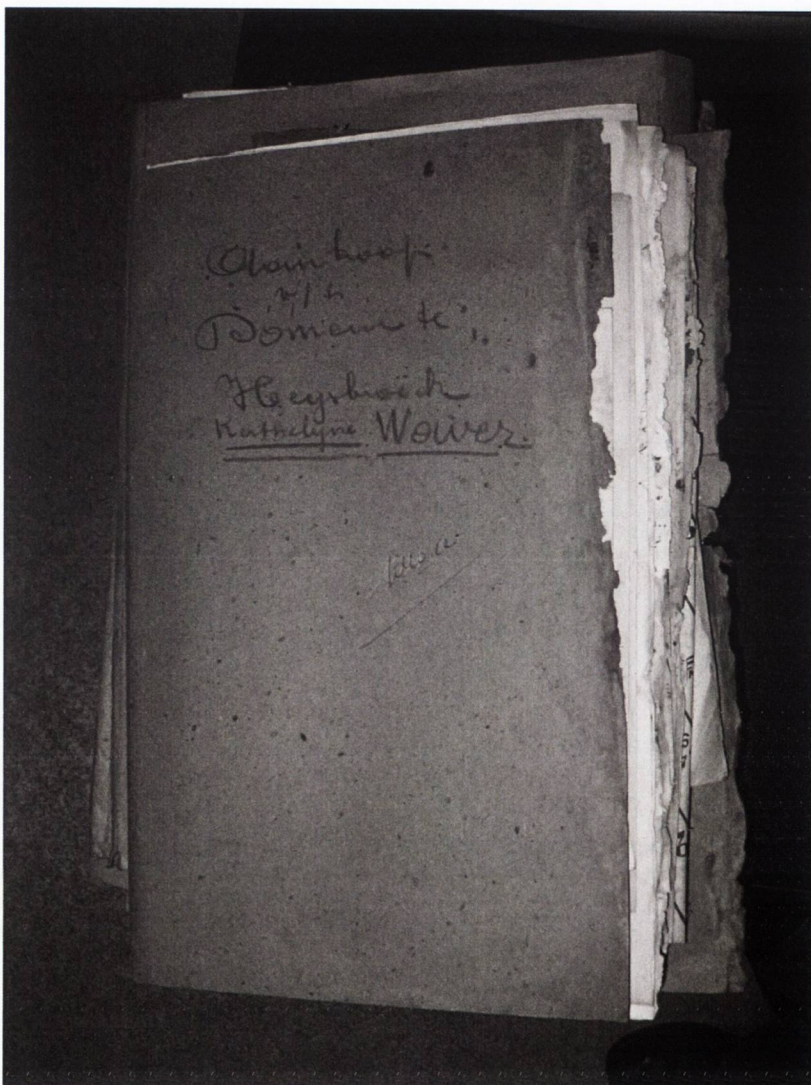 Aankoop
v/h
Domein te
Heysbroeck
Kathelyne Waver.